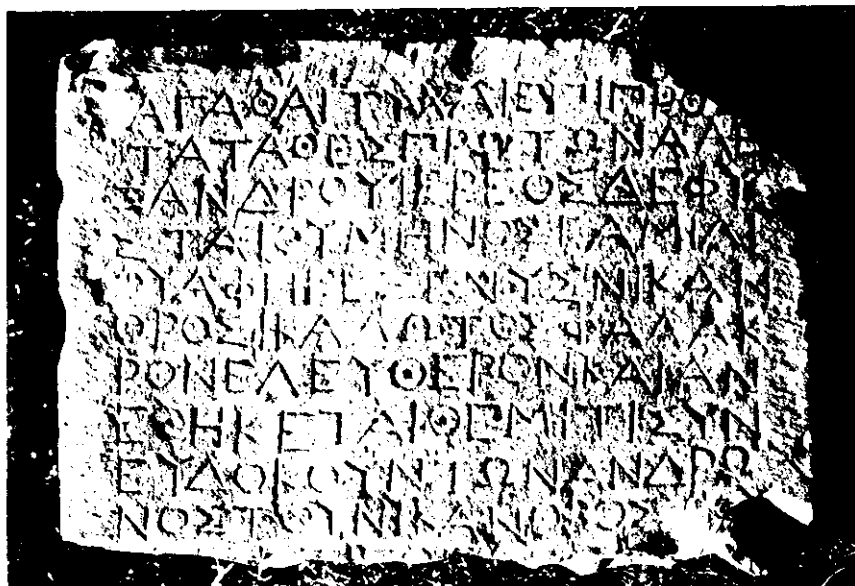 ΑΓΑΘΑΙΤΥΧΑΙΕΠΙΠΡΟ
ΤΑΤΑΘΕΣΠΡΩΤΩΝΑΛΕ
ΞΑΝΔΡΟΥΙΕΡΕΟΣΔΕΦΥ
ΣΤΑΤΟΥΜΗΝΟΣΓΑΜΙΛΙ
ΟΥΑΦΙΗ ΝΥΣΝΙΚΑΝ
ΟΡΟΣ ΦΑΛΑΚ
ΡΟΝΕΛΕΥΘΕΡΟΝΚΑΙΑΝ
ΕΘΗΚΕΤΑΙΘΕΜΙΤΙΣΥΝ
ΕΥΔΟΚΟΥΝΤΩΝΑΝΔΡΩ
ΝΟΣΤΟΥΝΙΚΑΝΟΡΟΣ